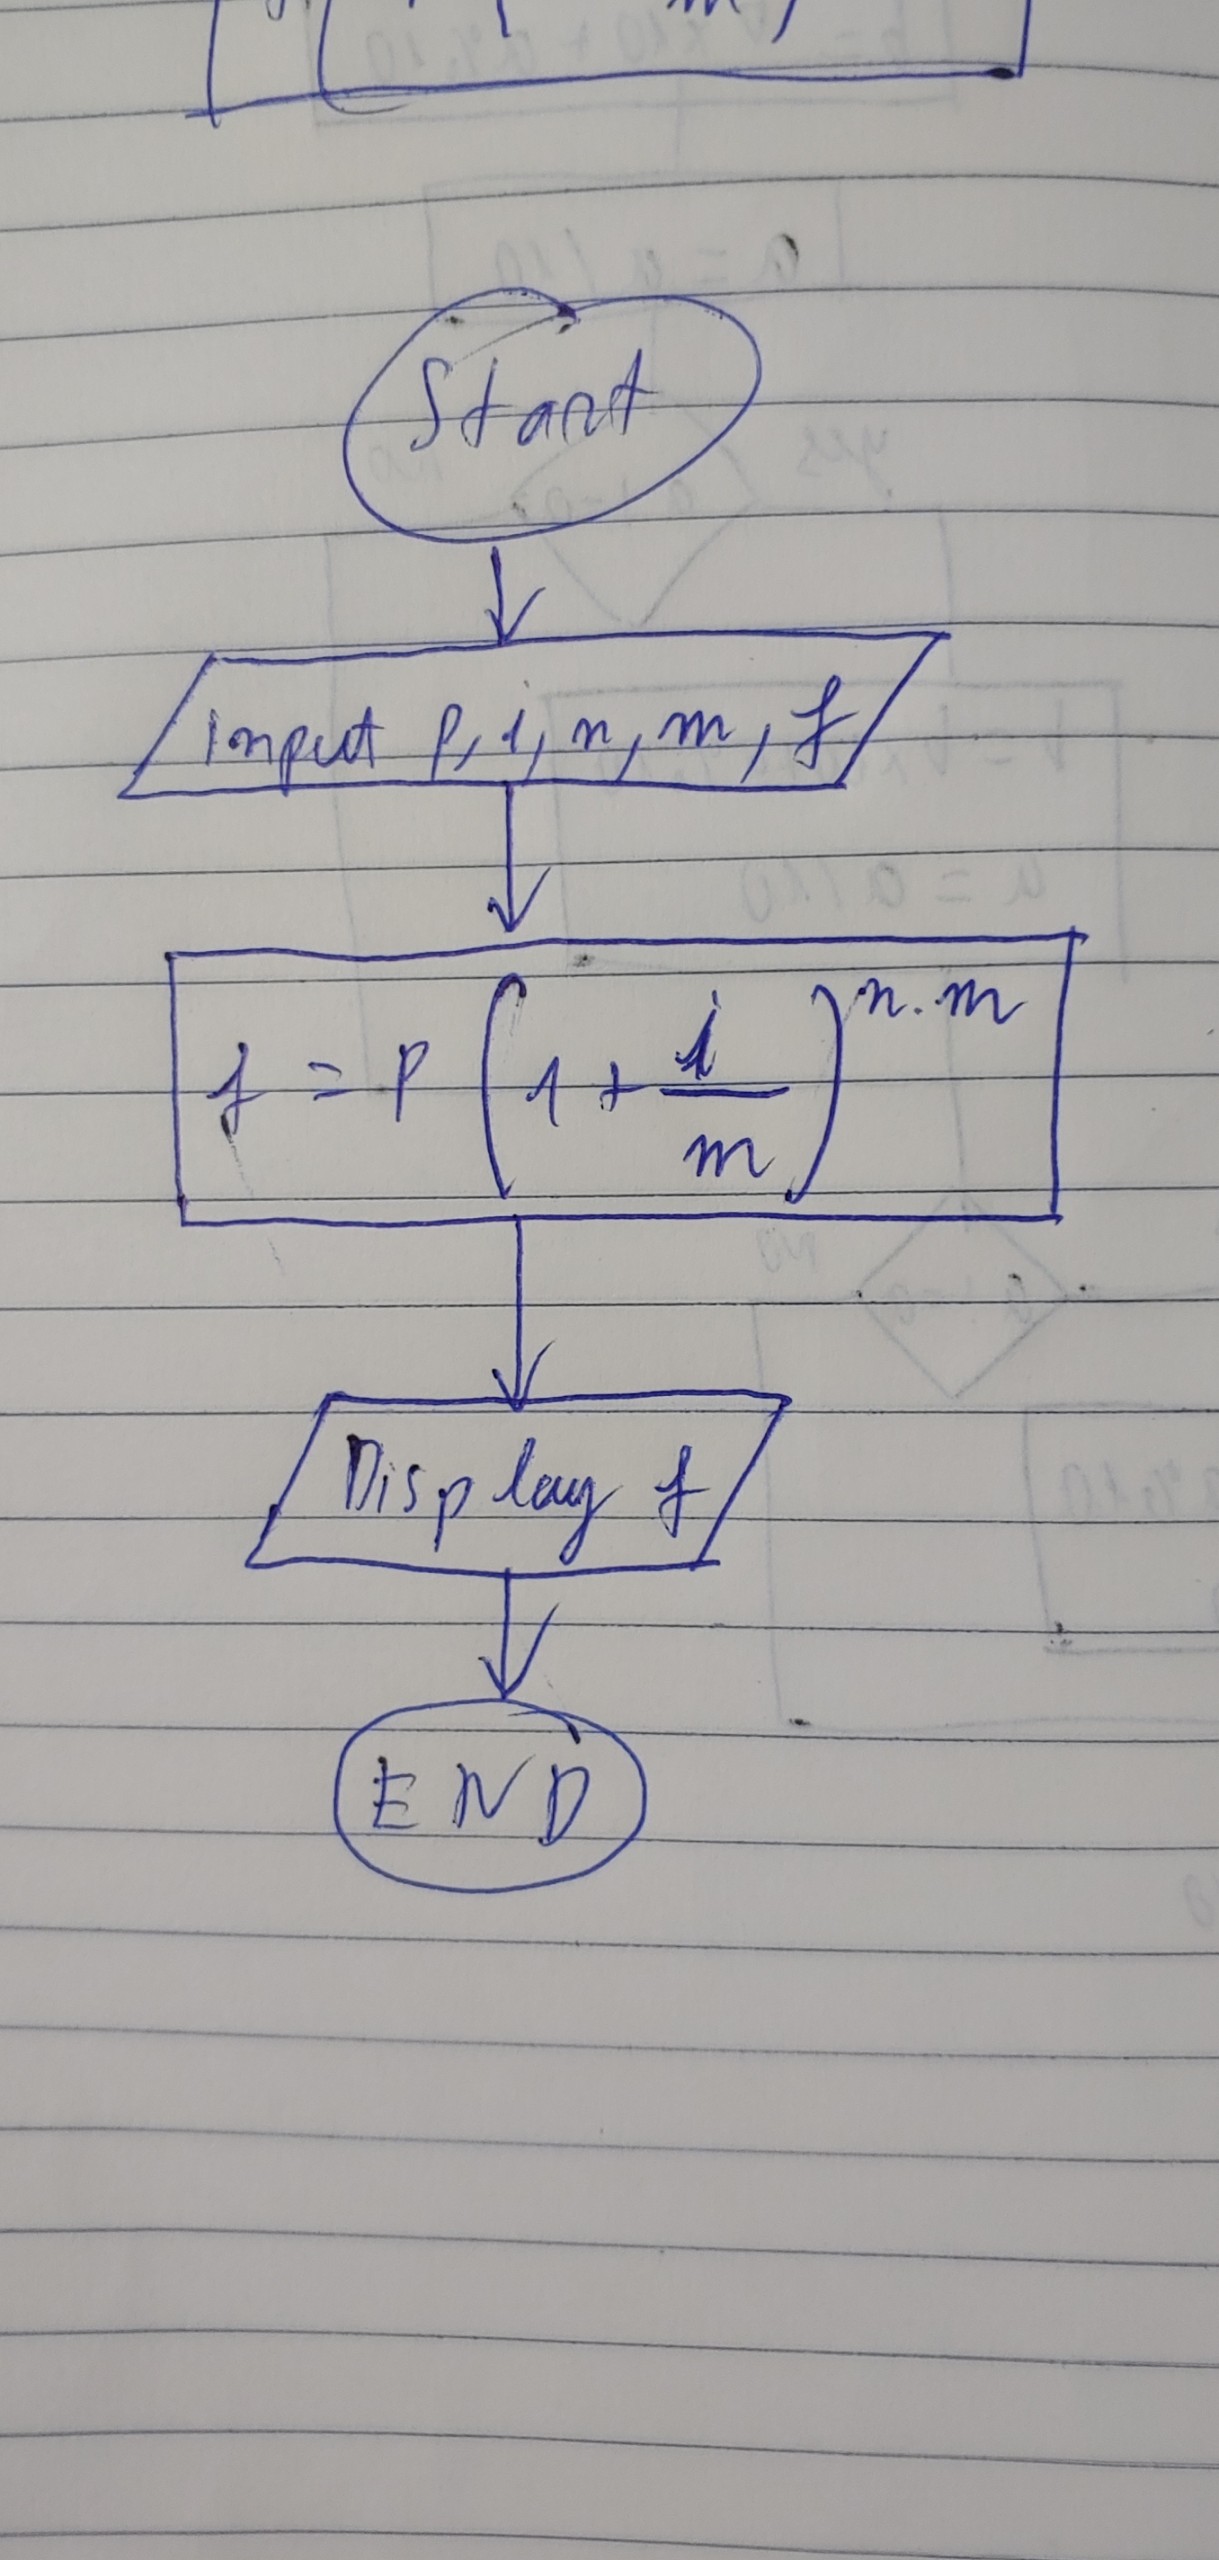 Start
input p, i, n, m, f
f = p (1 + i/m)^n.m
Display f
END